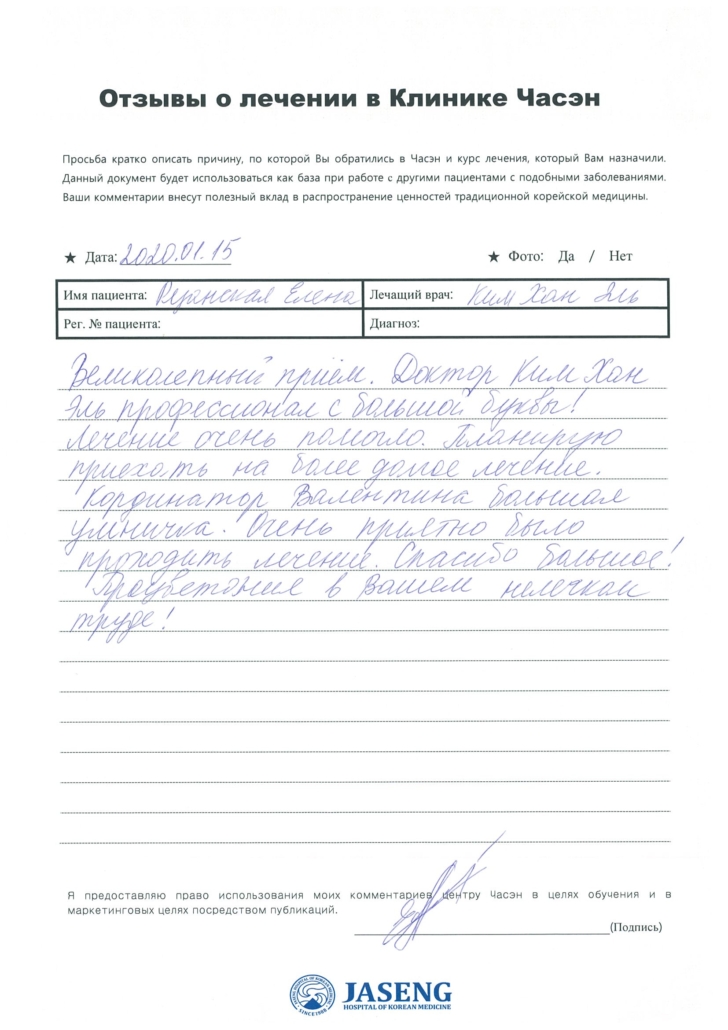 Отзывы о лечении в Клинике Часэн
Просьба кратко описать причину, по которой Вы обратились в Часэн и курс лечения, который Вам назначили.
Данный документ будет использоваться как база при работе с другими пациентами с подобными заболеваниями.
Ваши комментарии внесут полезный вклад в распространение ценностей традиционной корейской медицины.
★ Дата: 2020.01.15 ★ Фото: Да / Нет
Имя пациента: Елена Лечащий врач: Ким Хан Эль
Рег. № пациента: Диагноз:
Великолепный приём. Доктор Ким Хан
Эль профессионал с большой буквы!
Лечение очень помогло. Планирую
приехать на более долгое лечение.
Кординатор Валентина большая
умничка. Очень приятно было
проходить лечение. Спасибо большое!
Процветания в Вашем нелечком
труде!
Я предоставляю право использования моих комментариев центру Часэн в целях обучения и в
маркетинговых целях посредством публикаций.
(Подпись)
JASENG HOSPITAL OF KOREAN MEDICINE
SINCE 1988
JASENG
HOSPITAL OF KOREAN MEDICINE